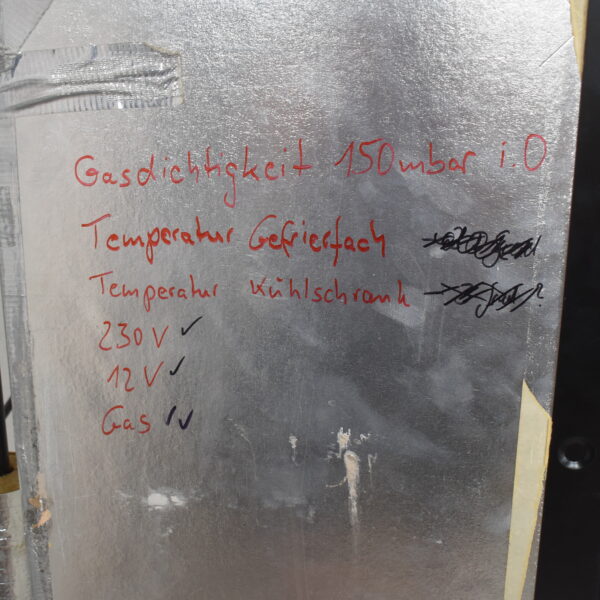 Gasdichtigkeit 150mbar i.O
Temperatur Gefrierfach
Temperatur Kühlschrank
230V ✓
12V ✓
Gas ✓✓